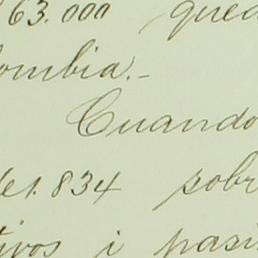 63.000 qued
ombia.-
Cuando
des. 834 sobr
tivos i pasi